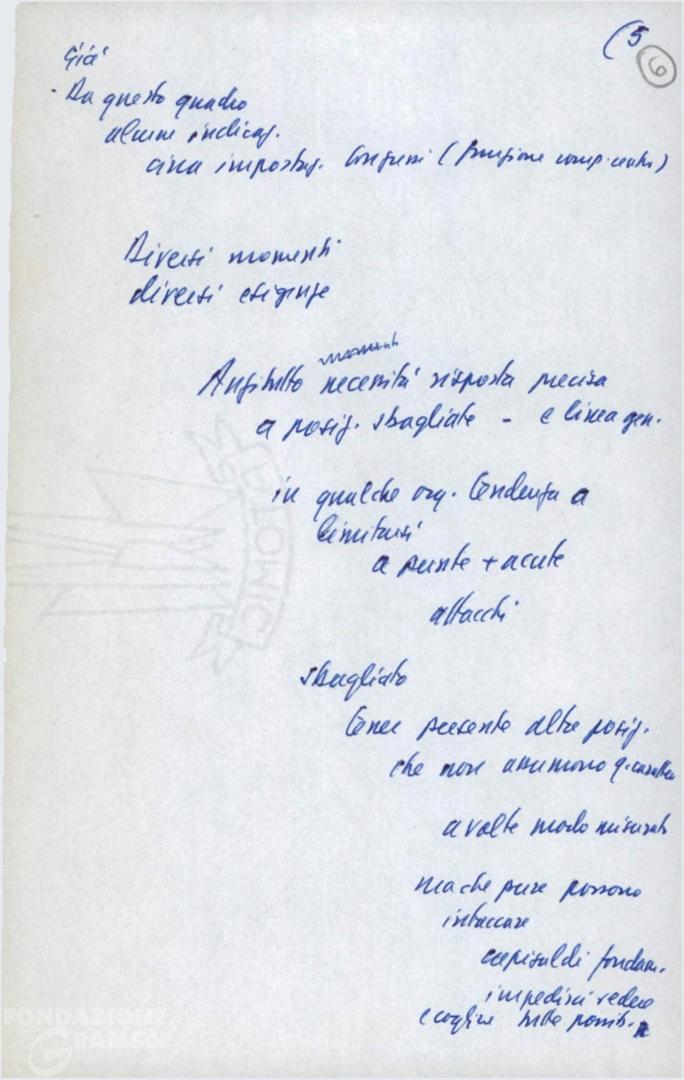 (5
6
Già
- Da questo quadro
alcune indicaz.
circa impostaz. Congressi (funzione comp. centr.)
Diversi momenti
diversi esigenze
Anzitutto necessità risposta precisa
a posiz. sbagliate - e linea gen.
in qualche org. tendenza a
limitarsi
a punte + acute
attacchi
sbagliato
tener presente altre posiz.
che non assumono q. caratter
a volte modo misurato
ma che pure possono
intaccare
capisaldi fondam.
impedirci vedere
e cogliere tutte possib.
FONDAZIONE
GRAMSCI